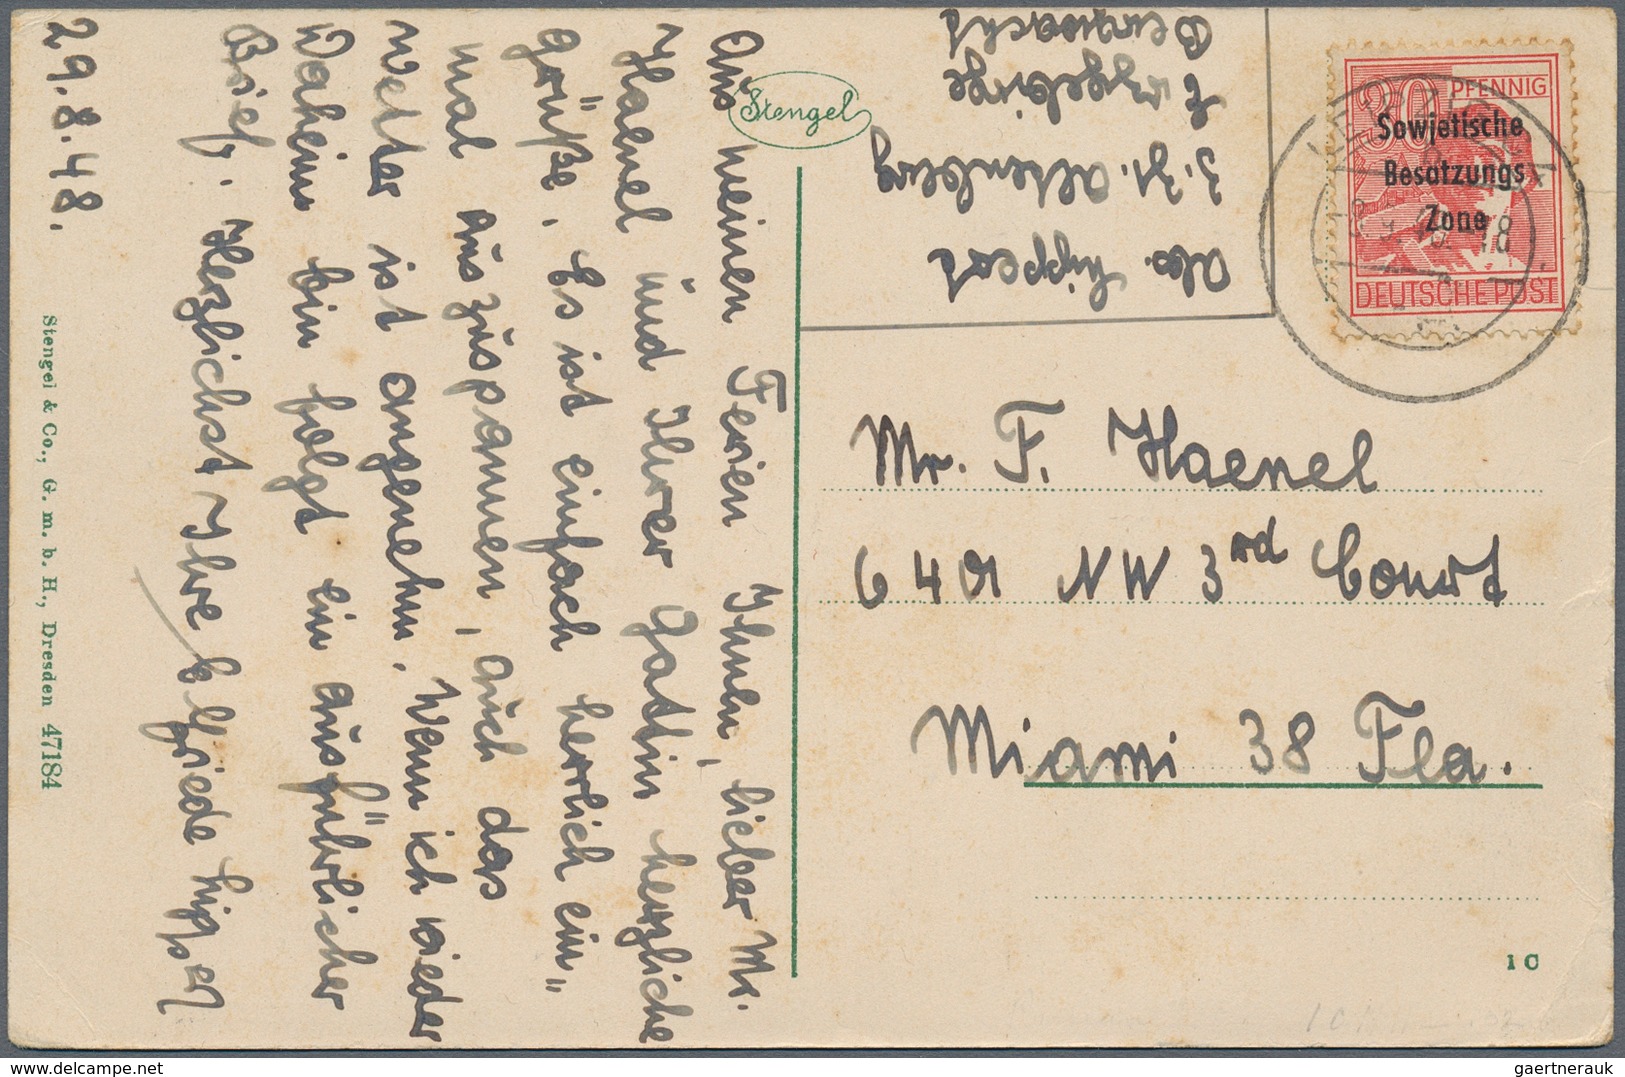 Aus meinen Ferien Ihnen, lieber Mr.
Haenel und Ihrer Gattin herzliche
Grüße. Es ist einfach herrlich ein"
mal auszuspannen, auch das
Wetter ist angenehm. Wenn ich wieder
Daheim bin folgt ein ausführlicher
Brief. Herzlichst Ihre Elfriede Lippert
29.8.48.
Stengel & Co., G. m. b. H., Dresden 47184
Stengel
Abs. Lippert
z. Zt. Altenberg
Erzgebirge
80 PFENNIG
Sowjetische
Besatzungs
Zone
DEUTSCHE POST
Mr. F. Haenel
6401 NW 3rd Court
Miami 38 Fla.
1 C
gaertnerauk